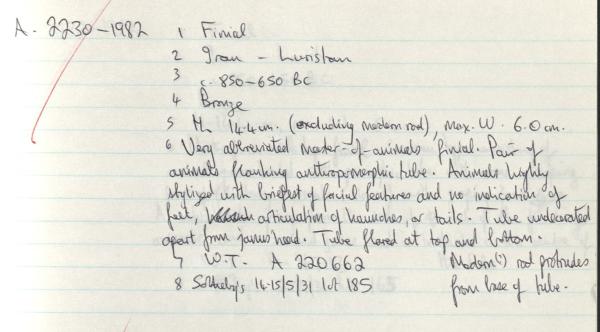 A. 2230-1982 1 Finial
2 Iran - Luristan
3 c. 850-650 BC
4 Bronze
5 H. 14.4 cm. (excluding modern rod), max. W. 6.0 cm.
6 Very abbreviated master-of-animals finial. Pair of
animals flanking anthropomorphic tube. Animals highly
stylized with briefest of facial features and no indication of
feet, articulation of haunches, or tails. Tube undecorated
apart from janus head. Tube flared at top and bottom.
7 W.T. A 220662 Modern(?) rod protrudes
8 Sotheby's 14-15/5/31 lot 185 from base of tube.